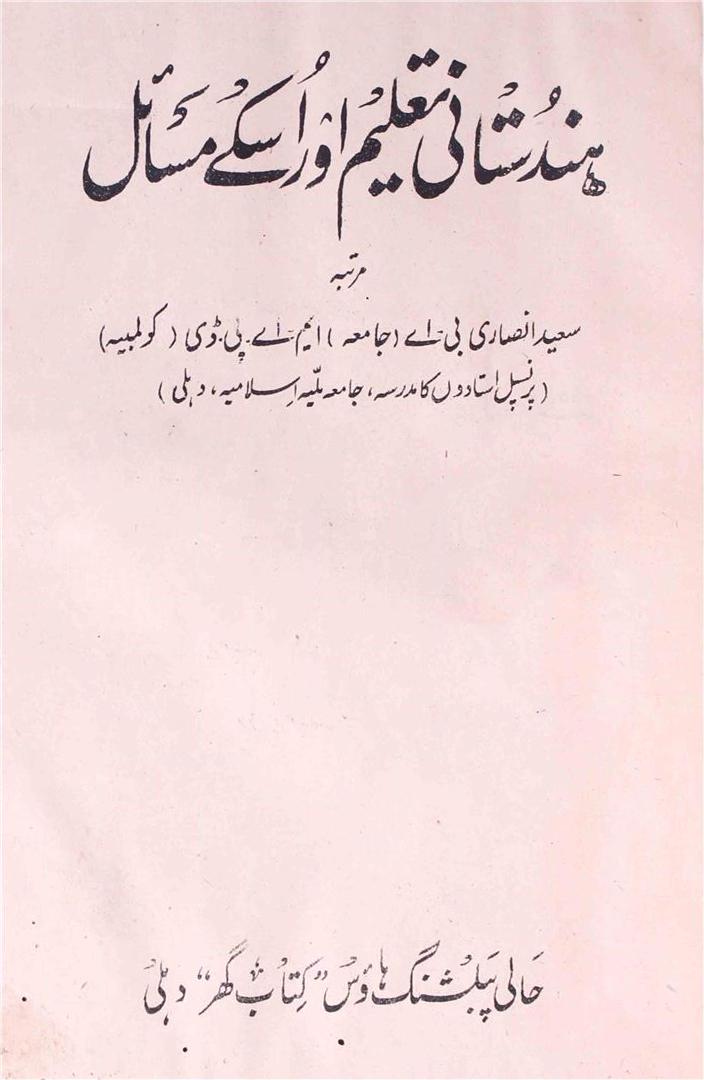 ہندُستانی تعلیم اور اُسکے مسائل
مرتبہ
سعید انصاری بی-اے (جامعہ) ایم-اے-پی-ڈی (کولمبیہ)
(پرنسپل استادوں کا مدرسہ، جامعہ ملّیہ اسلامیہ، دہلی)
حالی پبلشنگ ہاؤس "کتاب گھر" دہلی